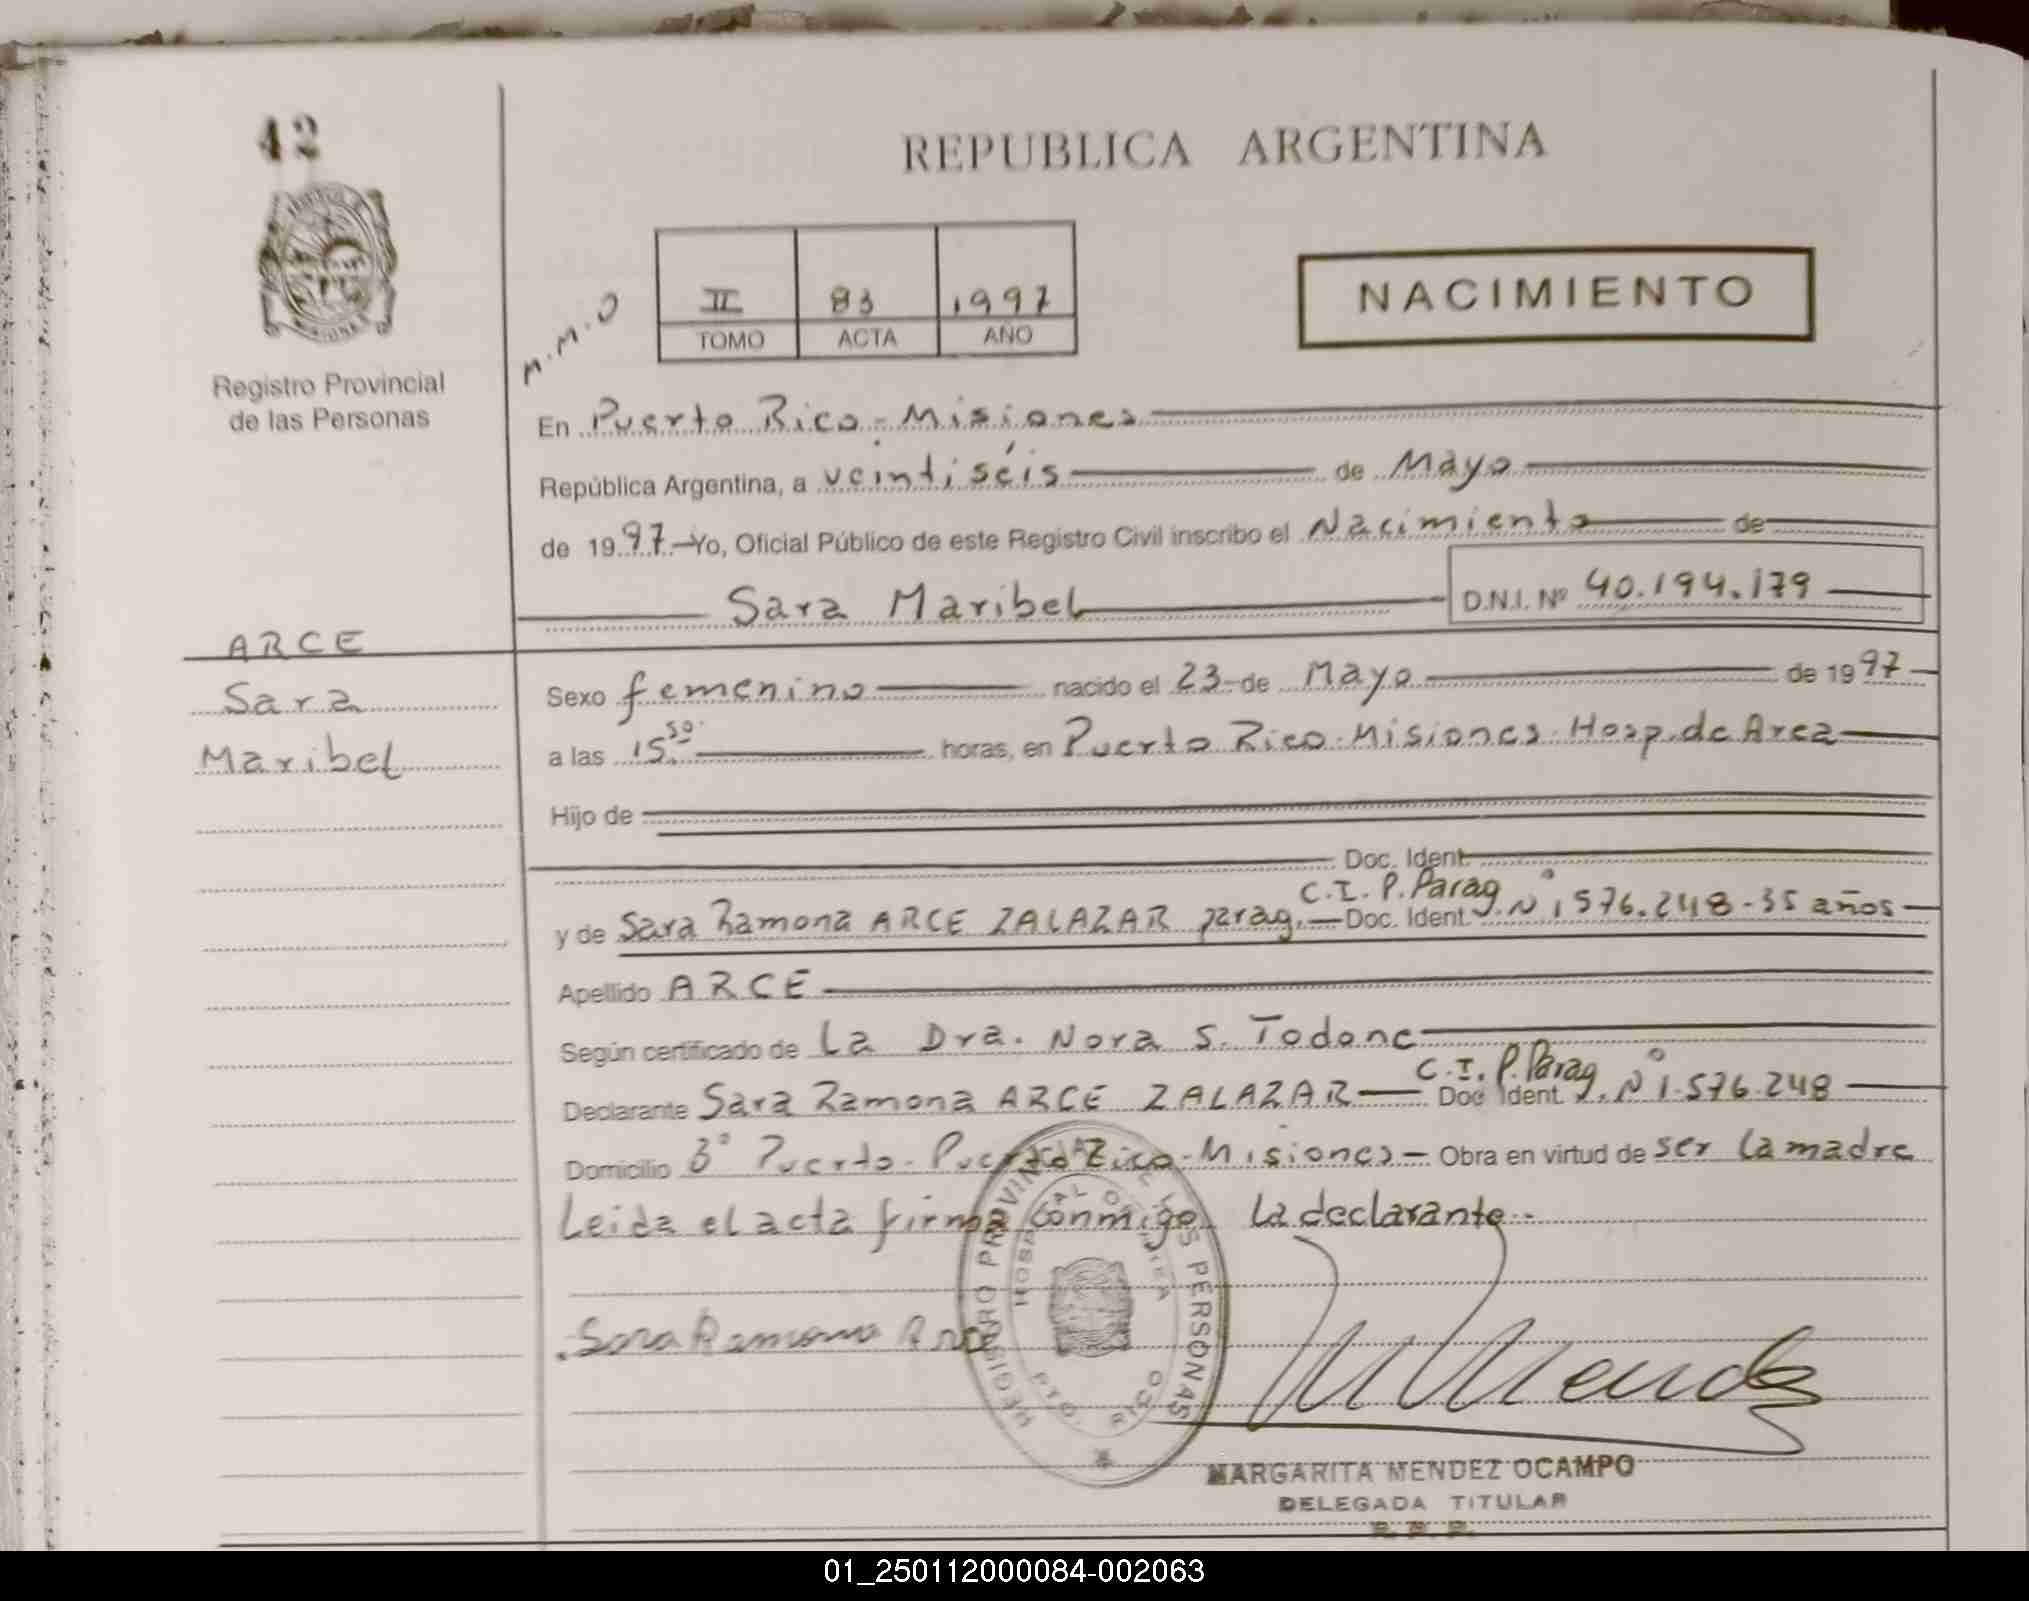 42
REPUBLICA ARGENTINA
NACIMIENTO
II 83 1997
TOMO ACTA AÑO
M.M.O
Registro Provincial
de las Personas
En Puerto Rico - Misiones
República Argentina, a veintiséis de Mayo
de 1997 Yo, Oficial Público de este Registro Civil inscribo el Nacimiento de
Sara Maribel D.N.I. Nº 40.194.179
ARCE
Sara
Maribel
Sexo femenino nacido el 23 de Mayo de 1997
a las 15.50 horas, en Puerto Rico-Misiones-Hosp.de Area
Hijo de
Doc. Ident
y de Sara Ramona ARCE ZALAZAR parag. Doc. Ident. C.I.P.Parag Nº 1576.248-35 años
Apellido ARCE
Según certificado de La Dra. Nora S. Todone
Declarante Sara Ramona ARCE ZALAZAR Doc Ident. C.I.P.Parag. Nº 1.576.248
Domicilio Bº Puerto-Puerto Rico-Misiones- Obra en virtud de ser la madre
Leida el acta firma conmigo La declarante.-
Sara Ramona Arce
REGISTRO PROVINCIAL DE LAS PERSONAS
HOSPITAL DE AREA
PTO. RICO
MARGARITA MENDEZ OCAMPO
DELEGADA TITULAR
R. P. P.
01_250112000084-002063